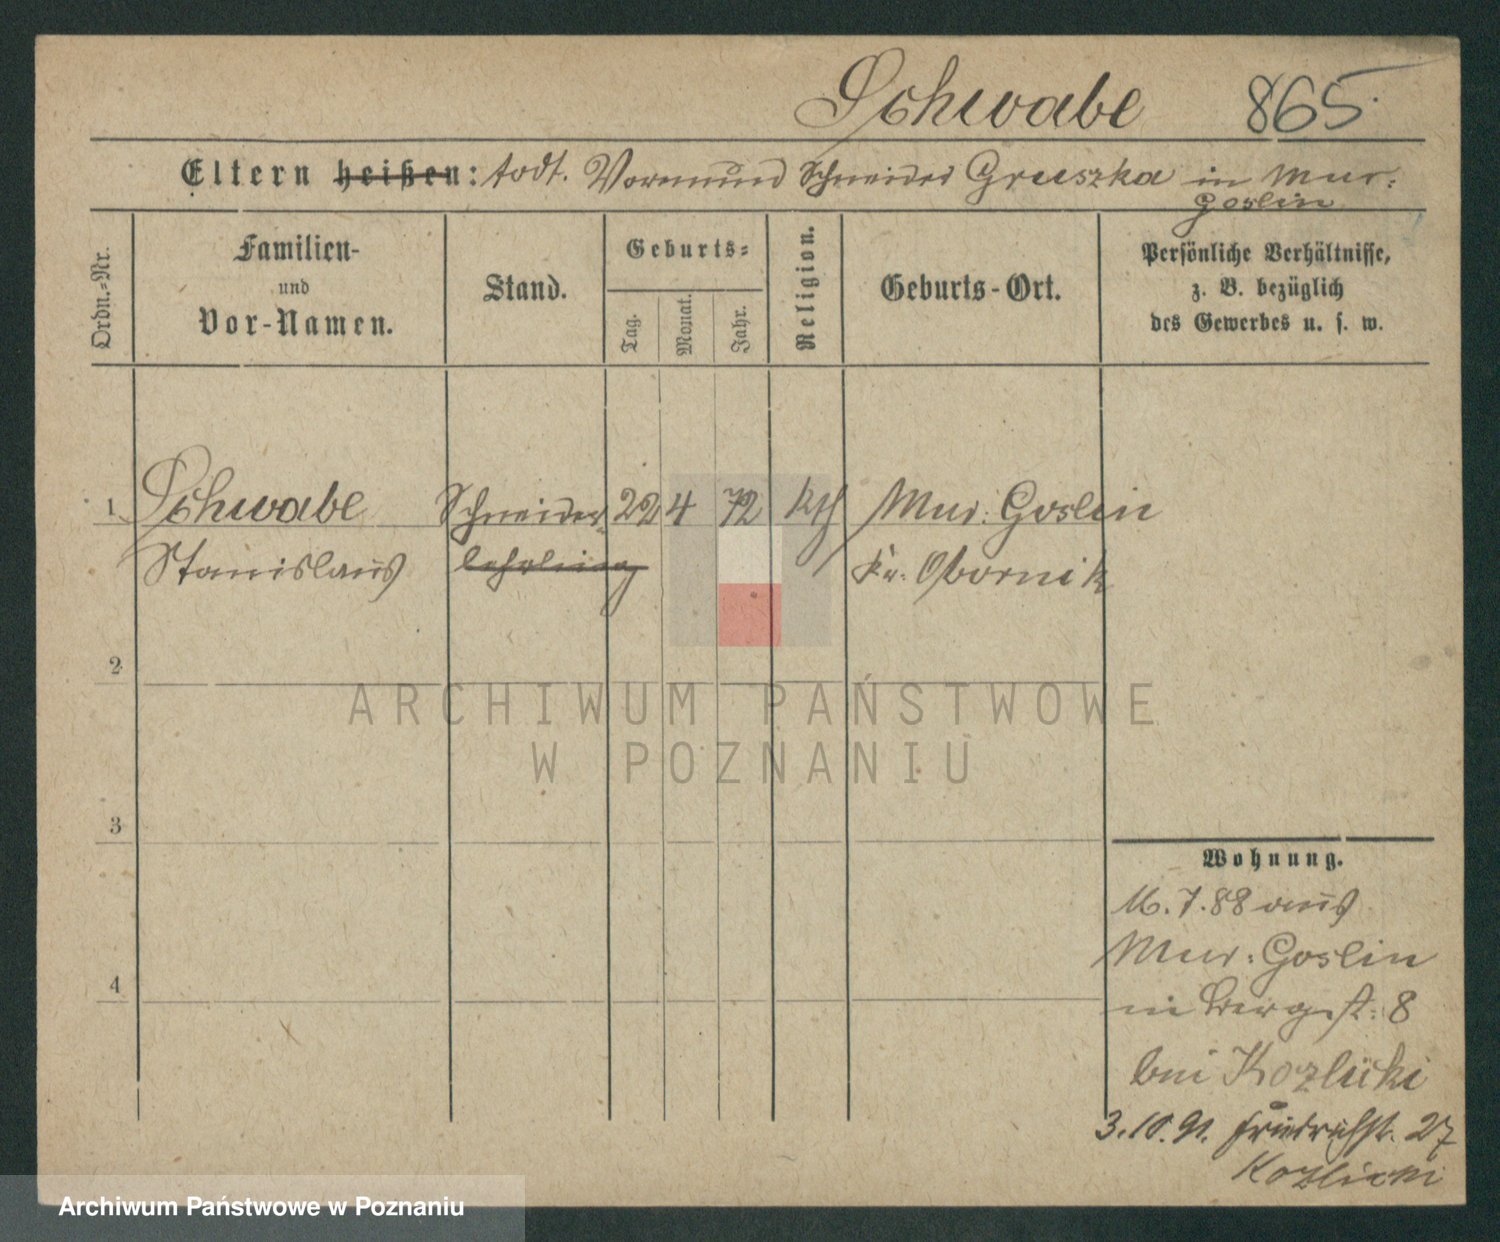 Schwabe 865.
Eltern heißen: todt. Vormund Schneider Gruszka in Mur:
Goslin
Ordn.-Nr.
Familien-
und
Vor-Namen.
Stand.
Geburts-
Tag.
Monat.
Jahr.
Religion.
Geburts-Ort.
Persönliche Verhältnisse,
z. B. bezüglich
des Gewerbes u. s. w.
1 Schwabe Schneider 22 4 72 kth Mur: Goslin
Stanislaus lehrling Kr. Obornik
2
3
4
Wohnung.
16. 7. 88 aus
Mur: Goslin
in Berg st: 8
bei Kozlicki
3. 10. 91. Friedrichstr. 27
Kozlicki
ARCHIWUM PAŃSTWOWE
W POZNANIU
Archiwum Państwowe w Poznaniu